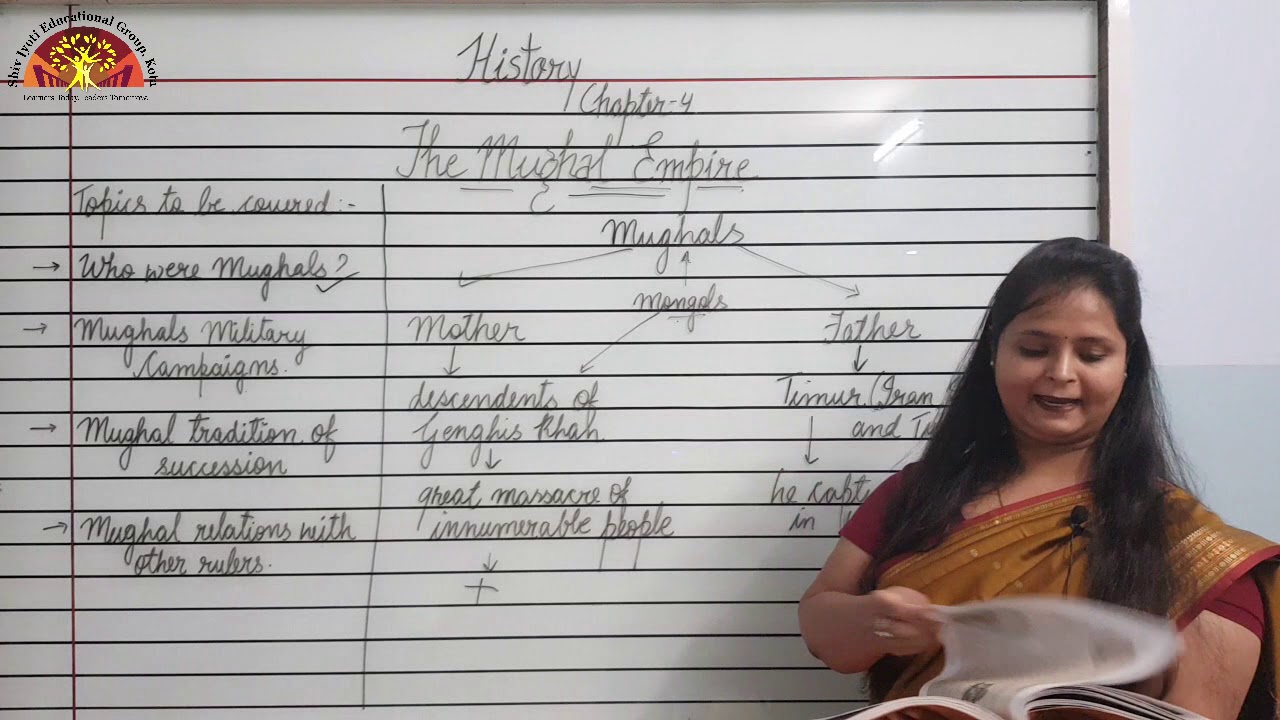 Shiv Jyoti Educational Group, Kota
Learners Today, Leaders Tomorrow.
History
Chapter-4
The Mughal Empire
Topics to be covered:-
→ Who were Mughals?
→ Mughals Military
Campaigns.
→ Mughal tradition of
succession
→ Mughal relations with
other rulers.
Mughals
Mongols
Mother
descendents of
Genghis Khan
great massacre of
innumerable people
+
Father
Timur (Iran
and
he
in